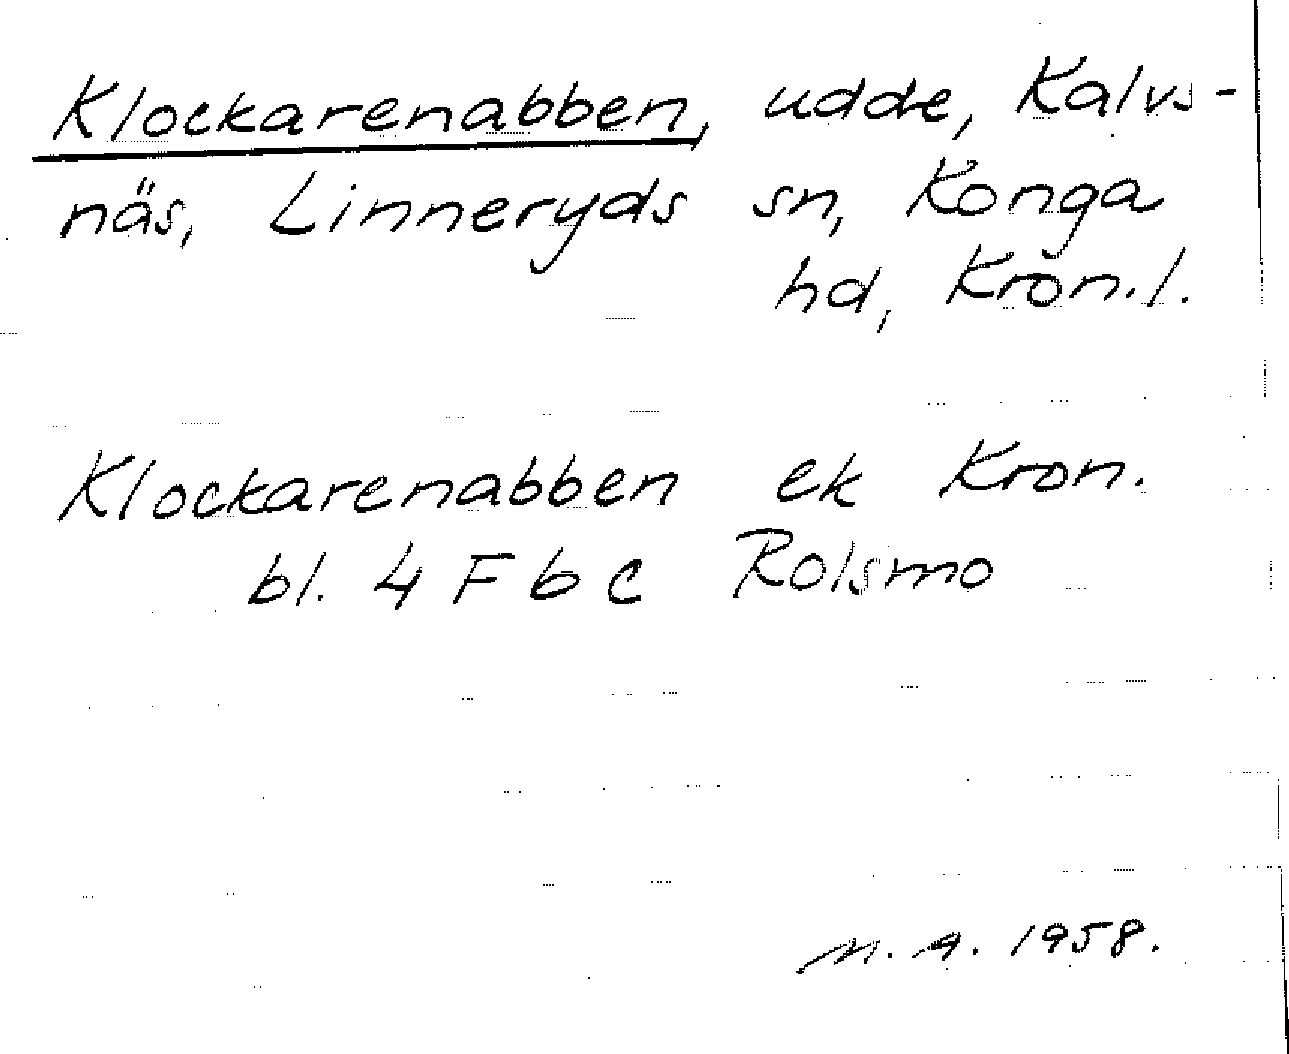 Klockarenabben, udde, Kalvs-
näs, Linneryds sn, Konga
hd, Kron. l.
Klockarenabben ek Kron.
bl. 4 F b c Rolsmo
M. A. 1958.